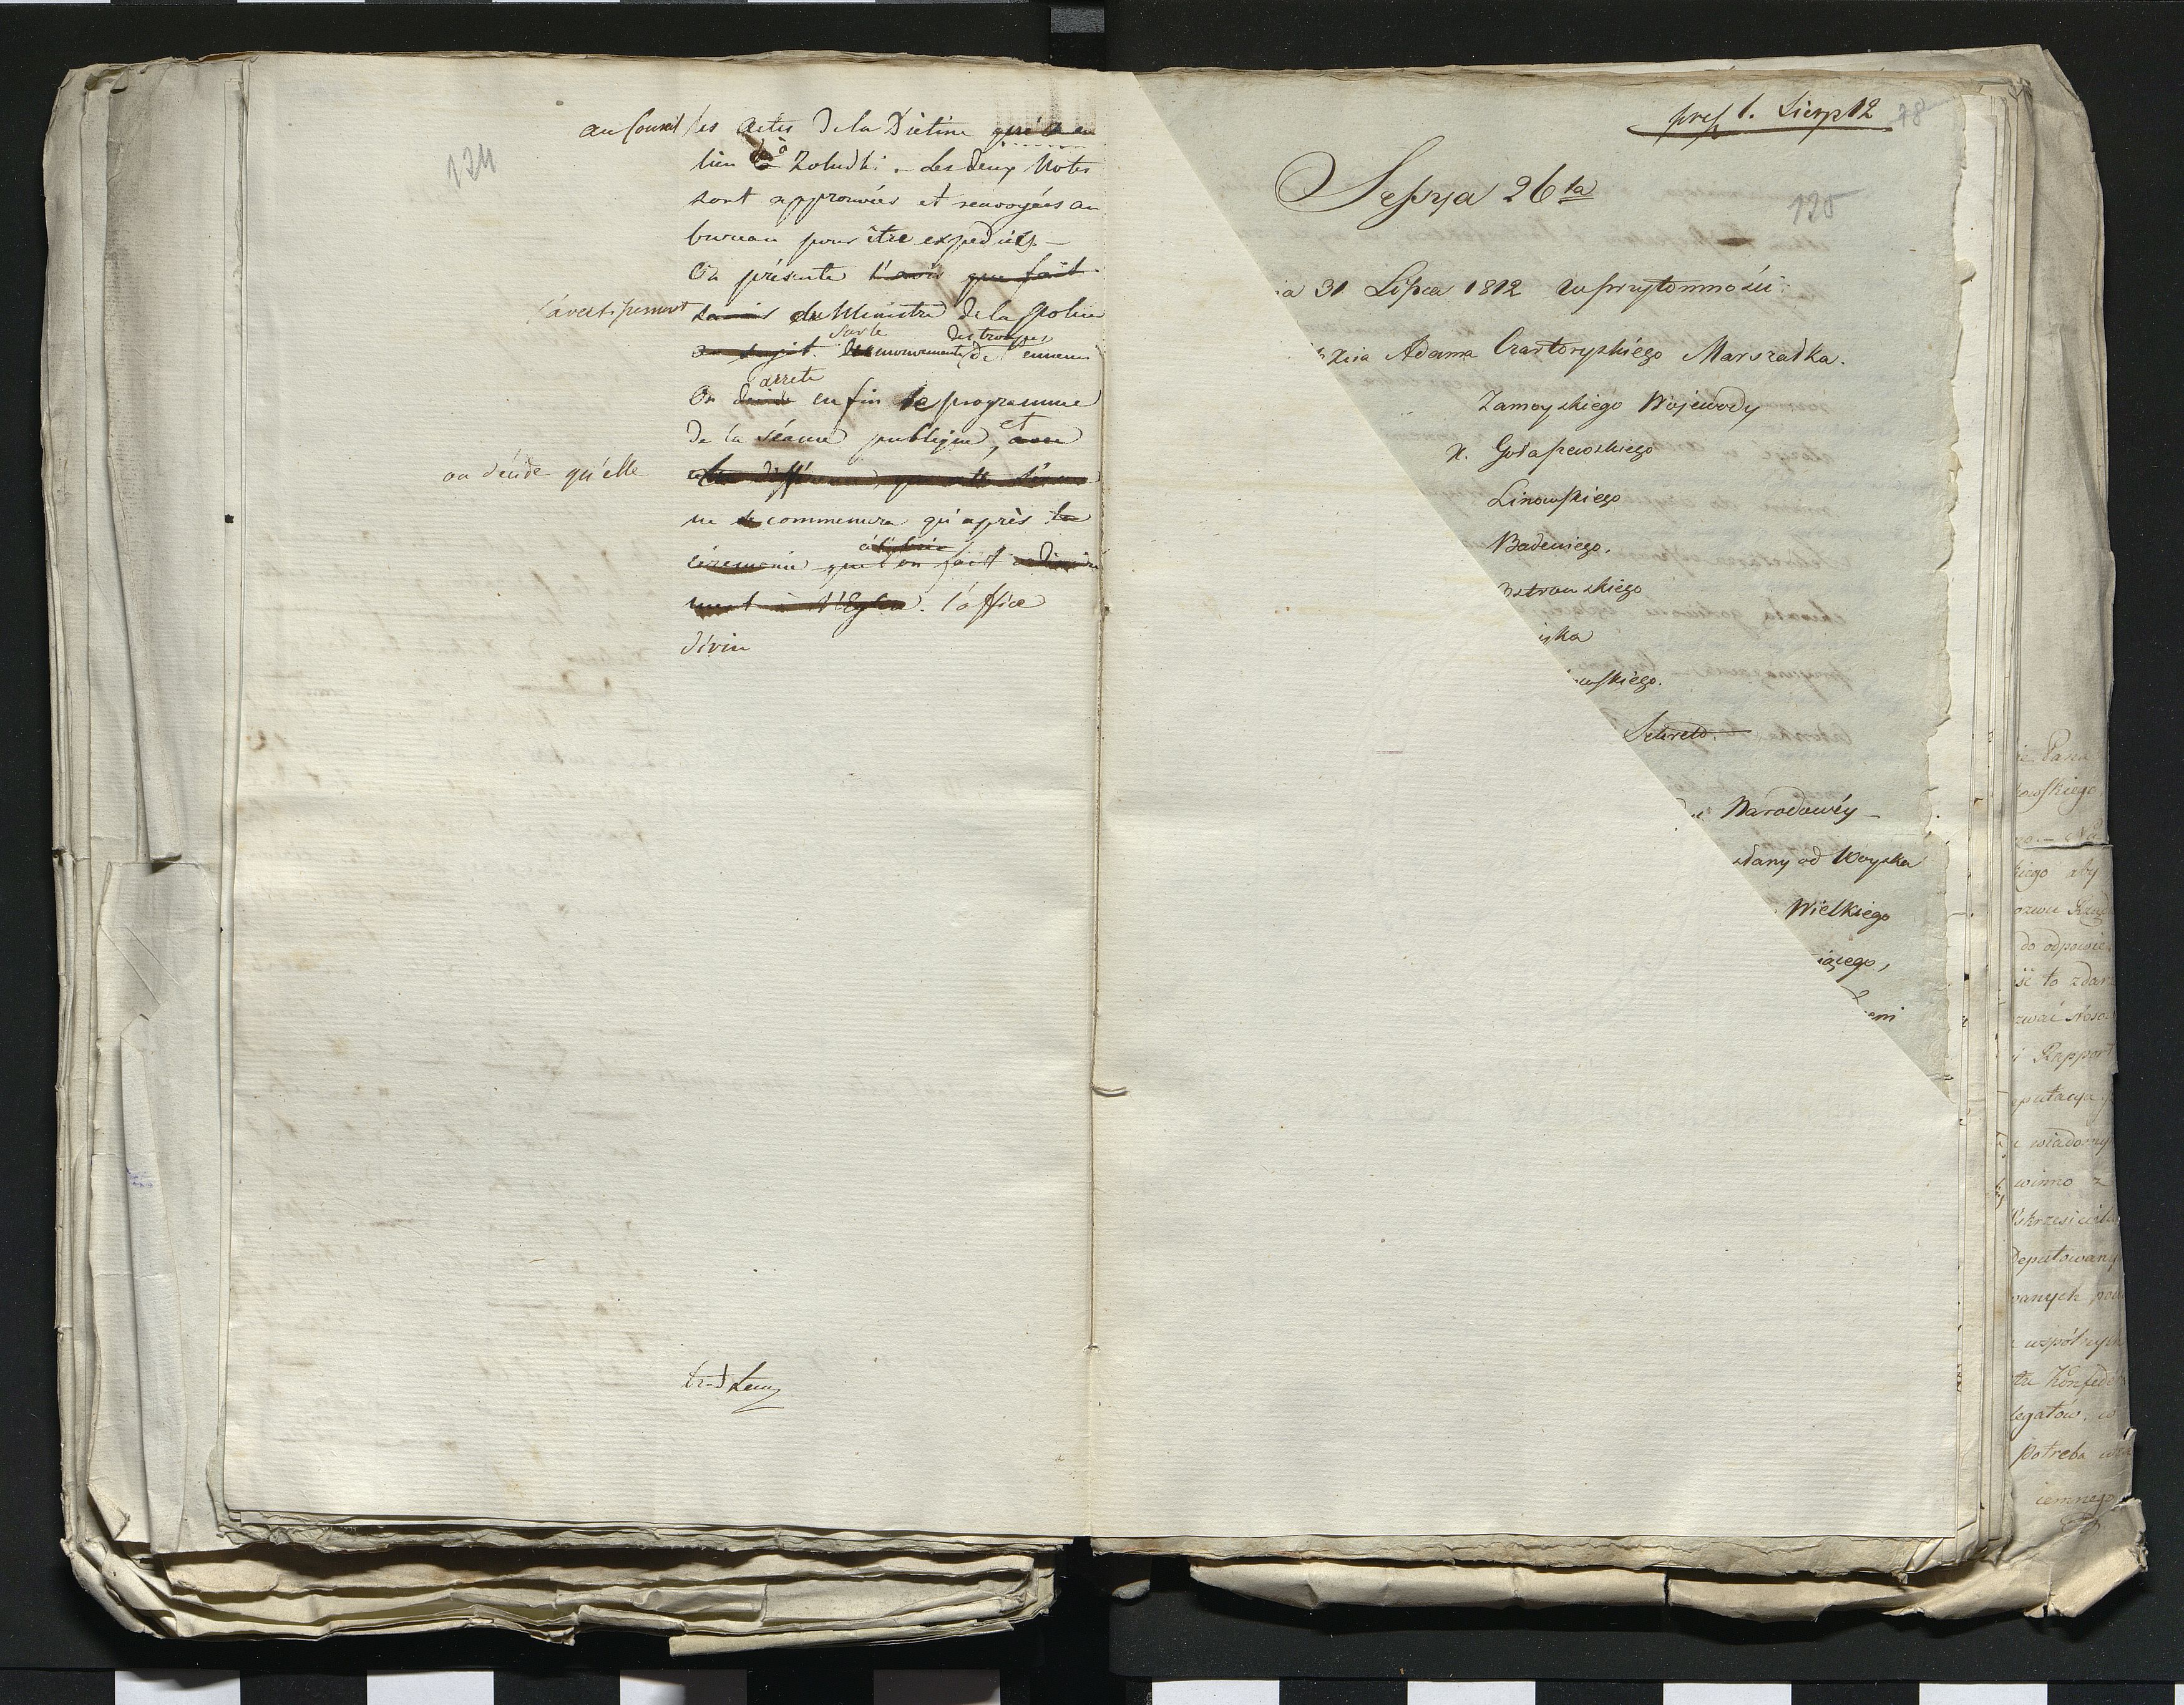 124
au Conseil les actes de la Diétine qui a eu
lieu à Zoludki. Les deux Notes
sont approuvées et renvoyées au
bureau pour être expediées. —
On présente l'avis que fait
l'avertissement du Ministre de la Police
sur le des troupes
au sujet des mouvements de l'ennemi
arrete
On decide enfin le programme
de la séance publique, et avec
on décide qu'elle
ne commencera qu'après la
ceremonie que l'on fait
ment à l'Eglise. l'office
divin
pres 1. Sierp 12
78
Sessya 26ta
125
ia 31 Lipca 1812 w przytomności
Xcia Adama Czartoryskiego Marszałka.
Zamoyskiego Wojewody
X. Gołaszewskiego
Linowskiego
Badeniego.
Ostrowskiego
ska
wskiego.
Sekreta.
Narodowéy —
słany od Woyska
Wielkiego
iącego,
eni
ie Pana
awskiego
go. — Na
kiego aby
do odpowie
iż to zdar
Rapport
eputacya
wiadomy
winno z
Wskrzesiciela
Deputowany
wanych
wspólnych
Konfede
legatów. w
potrzeba
iemnego